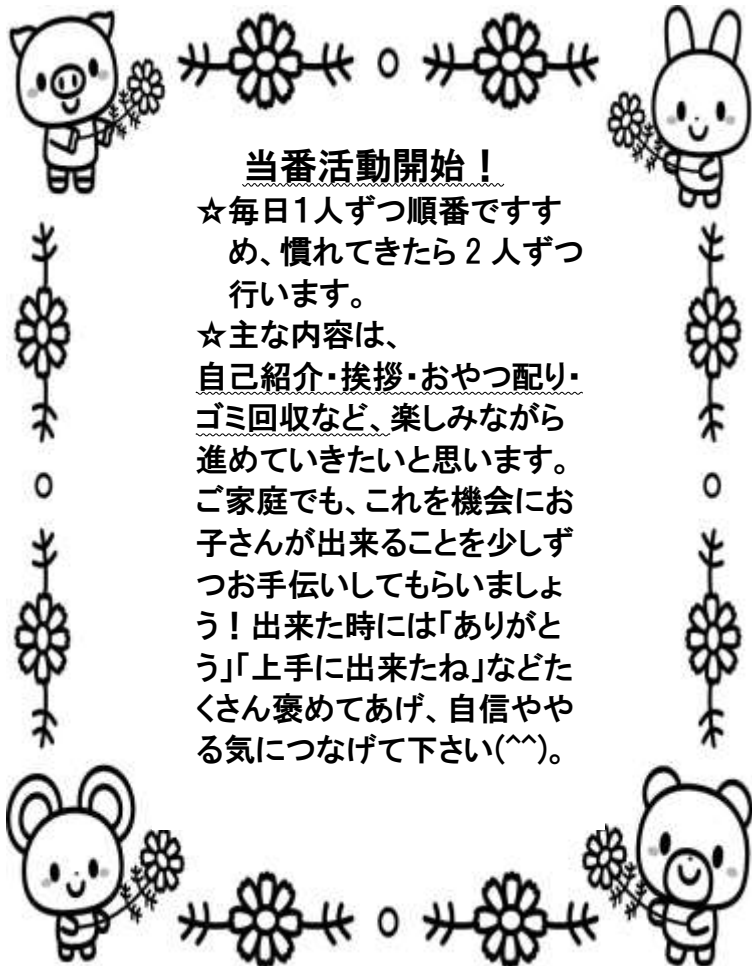 当番活動開始！
☆毎日1人ずつ順番ですす
め、慣れてきたら2人ずつ
行います。
☆主な内容は、
自己紹介・挨拶・おやつ配り・
ゴミ回収など、楽しみながら
進めていきたいと思います。
ご家庭でも、これを機会にお
子さんが出来ることを少しず
つお手伝いしてもらいましょ
う！出来た時には「ありがと
う」「上手に出来たね」などた
くさん褒めてあげ、自信やや
る気につなげて下さい(^^)。